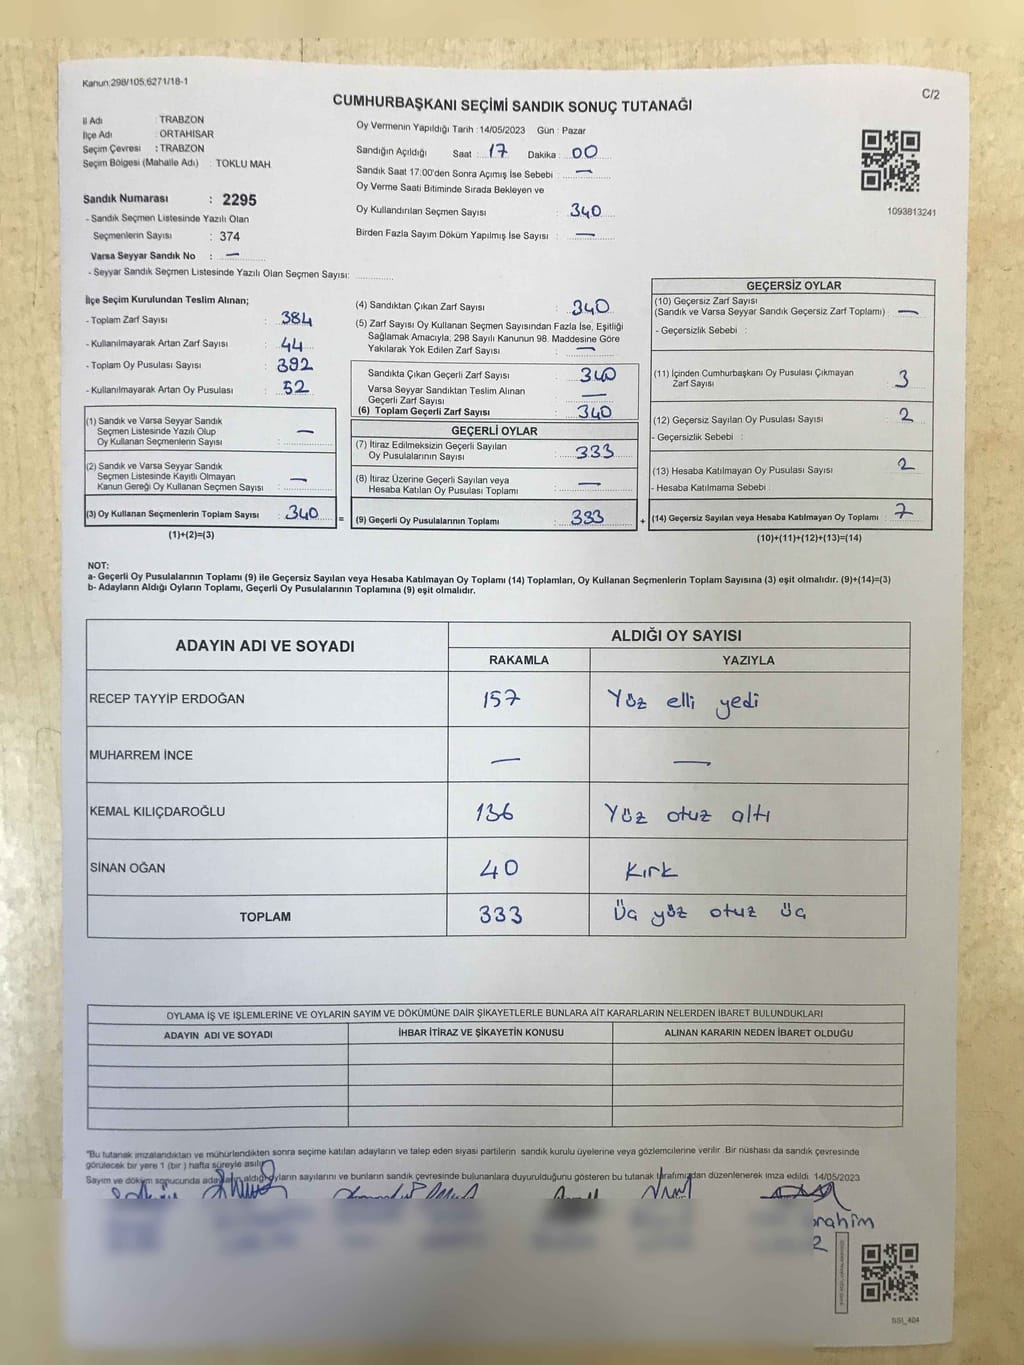 Kanun:298/105,6271/18-1
C/2
CUMHURBAŞKANI SEÇİMİ SANDIK SONUÇ TUTANAĞI
İl Adı : TRABZON
İlçe Adı : ORTAHİSAR
Seçim Çevresi : TRABZON
Seçim Bölgesi (Mahalle Adı) : TOKLU MAH
Sandık Numarası : 2295
- Sandık Seçmen Listesinde Yazılı Olan
Seçmenlerin Sayısı : 374
Varsa Seyyar Sandık No : —
- Seyyar Sandık Seçmen Listesinde Yazılı Olan Seçmen Sayısı:
Oy Vermenin Yapıldığı Tarih : 14/05/2023 Gün : Pazar
Sandığın Açıldığı Saat : 17 Dakika : 00
Sandık Saat 17:00'den Sonra Açımış İse Sebebi : —
Oy Verme Saati Bitiminde Sırada Bekleyen ve
Oy Kullandırılan Seçmen Sayısı : 340
Birden Fazla Sayım Döküm Yapılmış İse Sayısı : —
1093813241
İlçe Seçim Kurulundan Teslim Alınan;
- Toplam Zarf Sayısı : 384
- Kullanılmayarak Artan Zarf Sayısı : 44
- Toplam Oy Pusulası Sayısı : 392
- Kullanılmayarak Artan Oy Pusulası : 52
(1) Sandık ve Varsa Seyyar Sandık
Seçmen Listesinde Yazılı Olup
Oy Kullanan Seçmenlerin Sayısı : —
(2) Sandık ve Varsa Seyyar Sandık
Seçmen Listesinde Kayıtlı Olmayan
Kanun Gereği Oy Kullanan Seçmen Sayısı : —
(3) Oy Kullanan Seçmenlerin Toplam Sayısı : 340 =
(1)+(2)=(3)
(4) Sandıktan Çıkan Zarf Sayısı : 340
(5) Zarf Sayısı Oy Kullanan Seçmen Sayısından Fazla İse, Eşitliği
Sağlamak Amacıyla, 298 Sayılı Kanunun 98. Maddesine Göre
Yakılarak Yok Edilen Zarf Sayısı : —
Sandıkta Çıkan Geçerli Zarf Sayısı : 340
Varsa Seyyar Sandıktan Teslim Alınan
Geçerli Zarf Sayısı : —
(6) Toplam Geçerli Zarf Sayısı : 340
GEÇERLİ OYLAR
(7) İtiraz Edilmeksizin Geçerli Sayılan
Oy Pusulalarının Sayısı : 333
(8) İtiraz Üzerine Geçerli Sayılan veya
Hesaba Katılan Oy Pusulası Toplamı : —
(9) Geçerli Oy Pusulalarının Toplamı : 333 +
GEÇERSİZ OYLAR
(10) Geçersiz Zarf Sayısı
(Sandık ve Varsa Seyyar Sandık Geçersiz Zarf Toplamı) : —
- Geçersizlik Sebebi :
(11) İçinden Cumhurbaşkanı Oy Pusulası Çıkmayan
Zarf Sayısı : 3
(12) Geçersiz Sayılan Oy Pusulası Sayısı : 2
- Geçersizlik Sebebi :
(13) Hesaba Katılmayan Oy Pusulası Sayısı : 2
- Hesaba Katılmama Sebebi :
(14) Geçersiz Sayılan veya Hesaba Katılmayan Oy Toplamı : 7
(10)+(11)+(12)+(13)=(14)
NOT:
a- Geçerli Oy Pusulalarının Toplamı (9) ile Geçersiz Sayılan veya Hesaba Katılmayan Oy Toplamı (14) Toplamları, Oy Kullanan Seçmenlerin Toplam Sayısına (3) eşit olmalıdır. (9)+(14)=(3)
b- Adayların Aldığı Oyların Toplamı, Geçerli Oy Pusulalarının Toplamına (9) eşit olmalıdır.
ADAYIN ADI VE SOYADI ALDIĞI OY SAYISI
RAKAMLA YAZIYLA
RECEP TAYYİP ERDOĞAN 157 Yüz elli yedi
MUHARREM İNCE — —
KEMAL KILIÇDAROĞLU 136 Yüz otuz altı
SİNAN OĞAN 40 Kırk
TOPLAM 333 Üç yüz otuz üç
OYLAMA İŞ VE İŞLEMLERİNE VE OYLARIN SAYIM VE DÖKÜMÜNE DAİR ŞİKAYETLERLE BUNLARA AİT KARARLARIN NELERDEN İBARET BULUNDUKLARI
ADAYIN ADI VE SOYADI İHBAR İTİRAZ VE ŞİKAYETİN KONUSU ALINAN KARARIN NEDEN İBARET OLDUĞU
"Bu tutanak imzalandıktan ve mühürlendikten sonra seçime katılan adayların ve talep eden siyasi partilerin sandık kurulu üyelerine veya gözlemcilerine verilir. Bir nüshası da sandık çevresinde
görülecek bir yere 1 (bir) hafta süreyle asılır.
Sayım ve döküm sonucunda adayların aldığı oyların sayılarını ve bunların sandık çevresinde bulunanlara duyurulduğunu gösteren bu tutanak tarafımızdan düzenlenerek imza edildi. 14/05/2023
brahim
2
SSI_404